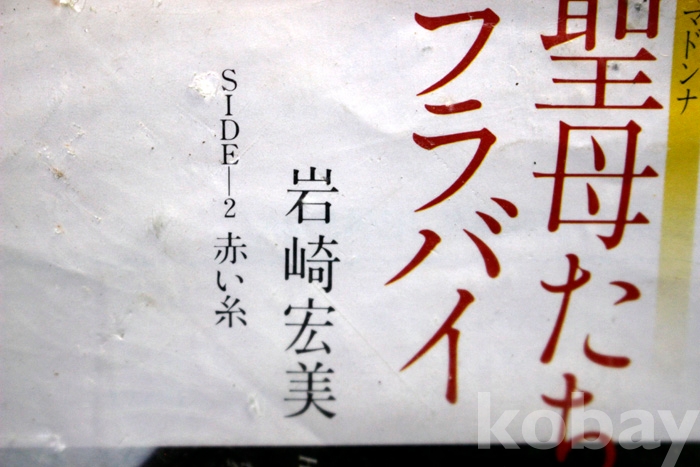 マドンナ
聖母たち
フラバイ
岩崎宏美
SIDE—2 赤い糸
kobay